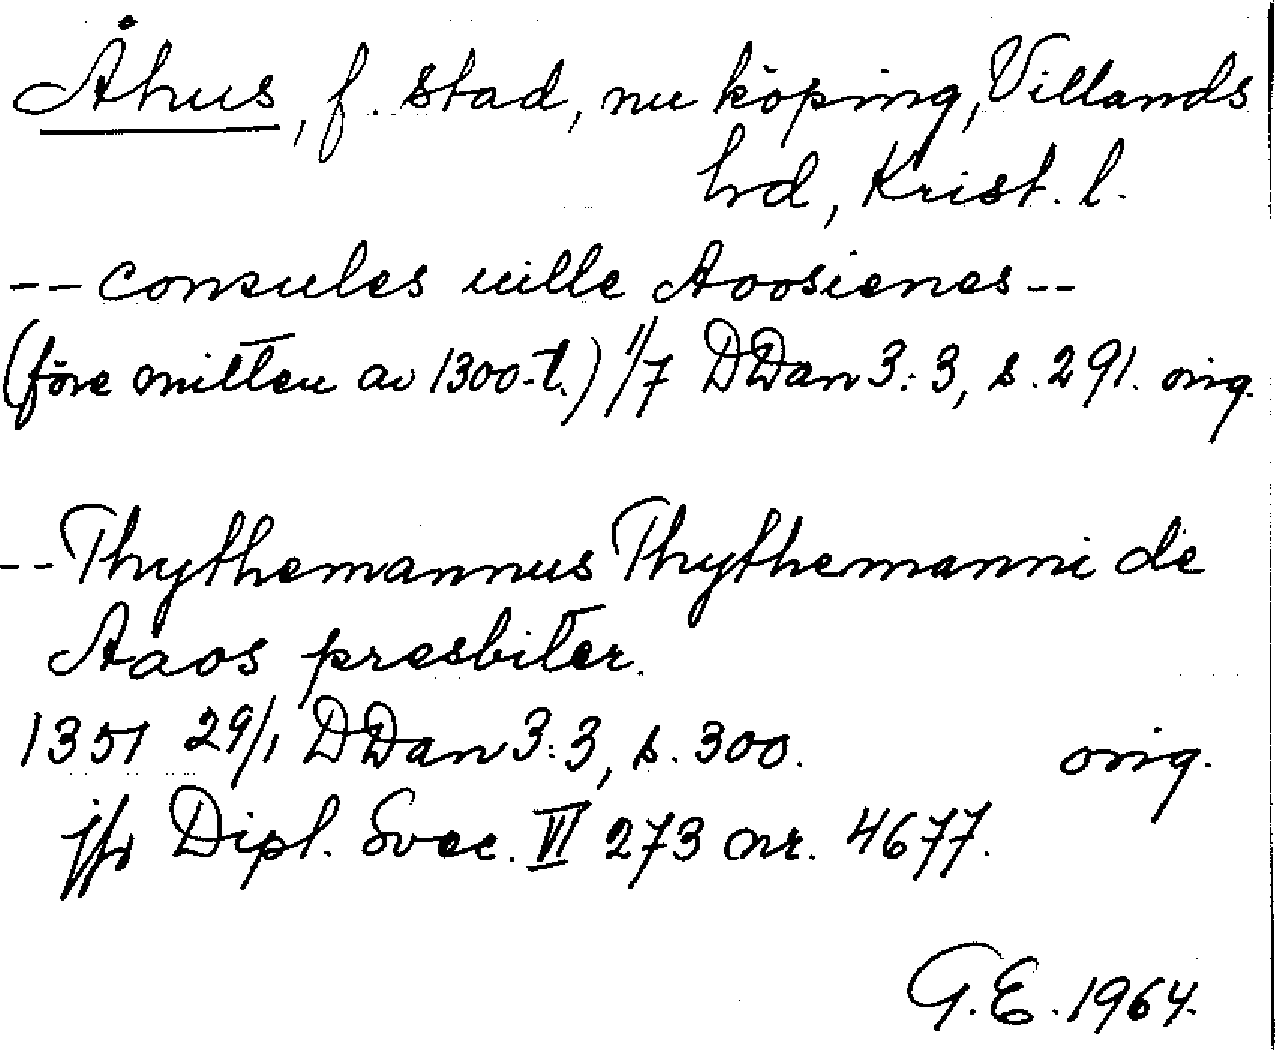 Åhus, f. stad, nu köping, Villands
hd, Krist. l.
-- consules uille Aoosienes --
(före mitten av 1300-t.) 1/7 DDan 3:3, s. 291. orig.
-- Thythemannus Thythemanni de
Aaos presbiter.
1351 29/1 DDan 3:3, s. 300. orig.
jfr Dipl. Svec. VI 273 nr. 4677.
G.E. 1964.